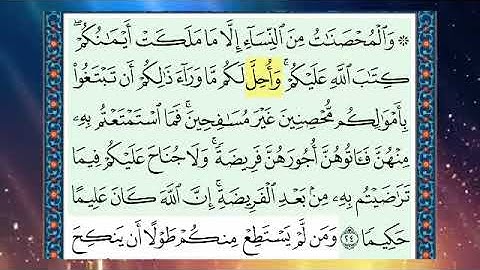 ۞ وَٱلْمُحْصَنَـٰتُ مِنَ ٱلنِّسَآءِ إِلَّا مَا مَلَكَتْ أَيْمَـٰنُكُمْ ۖ
كِتَـٰبَ ٱللَّهِ عَلَيْكُمْ ۚ وَأُحِلَّ لَكُم مَّا وَرَآءَ ذَٰلِكُمْ أَن تَبْتَغُوا۟
بِأَمْوَٰلِكُم مُّحْصِنِينَ غَيْرَ مُسَـٰفِحِينَ ۚ فَمَا ٱسْتَمْتَعْتُم بِهِۦ
مِنْهُنَّ فَـَٔاتُوهُنَّ أُجُورَهُنَّ فَرِيضَةً ۚ وَلَا جُنَاحَ عَلَيْكُمْ فِيمَا
تَرَٰضَيْتُم بِهِۦ مِنۢ بَعْدِ ٱلْفَرِيضَةِ ۚ إِنَّ ٱللَّهَ كَانَ عَلِيمًا
حَكِيمًا ۝٢٤ وَمَن لَّمْ يَسْتَطِعْ مِنكُمْ طَوْلًا أَن يَنكِحَ